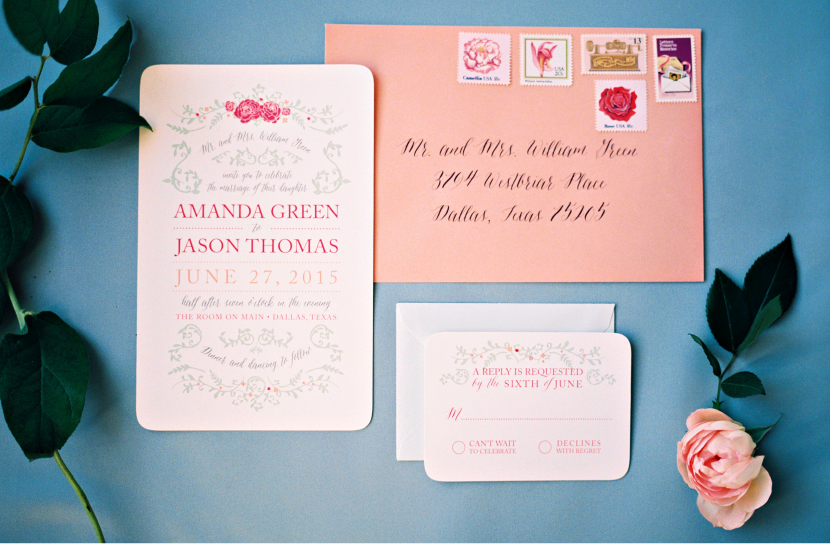 Mr. and Mrs. William Green
invite you to celebrate
the marriage of their daughter
AMANDA GREEN
to
JASON THOMAS
JUNE 27, 2015
half after seven o'clock in the evening
THE ROOM ON MAIN • DALLAS, TEXAS
Dinner and dancing to follow
Camellia USA
USA
13
USA
Mr. and Mrs. William Green
3794 Westbriar Place
Dallas, Texas 75205
A REPLY IS REQUESTED
by the SIXTH of JUNE
M
CAN'T WAIT
TO CELEBRATE
DECLINES
WITH REGRET